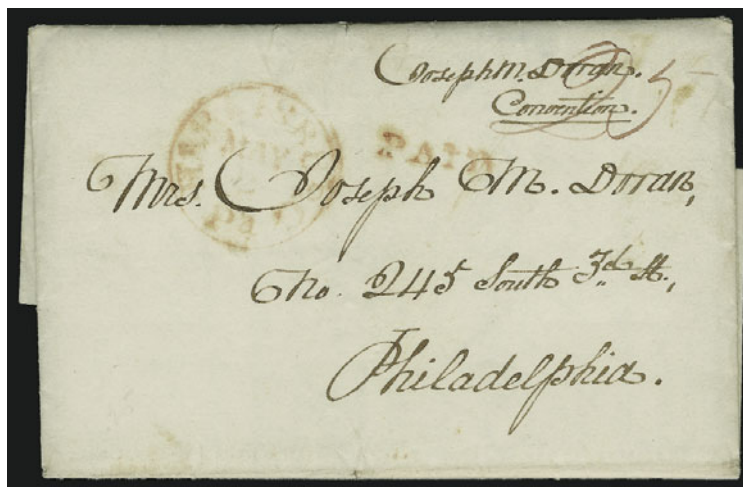 Joseph M. Doran.
Convention.
PAID
MAY
Pa
Mrs. Joseph M. Doran,
No. 245 South 3.d St.,
Philadelphia.